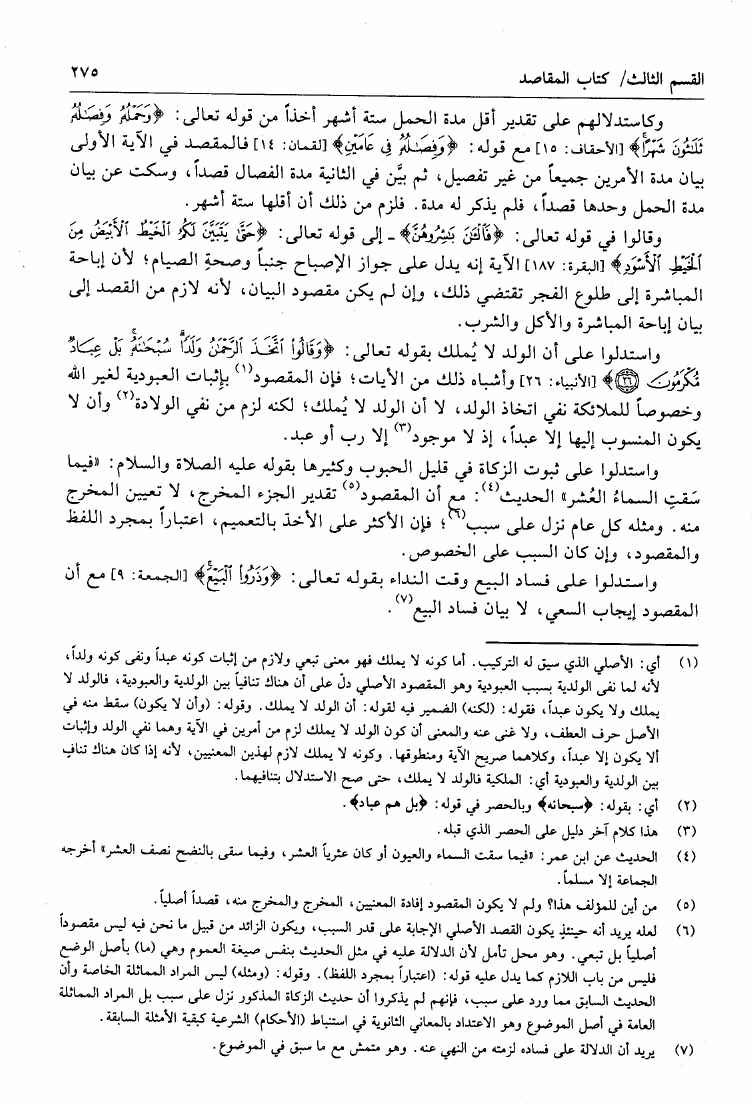 القسم الثالث/ كتاب المقاصد ٢٧٥
وكاستدلالهم على تقدير أقل مدة الحمل ستة أشهر أخذاً من قوله تعالى: ﴿وَحَمْلُهُ وَفِصَالُهُ
ثَلَاثُونَ شَهْرًا﴾ [الأحقاف: ١٥] مع قوله: ﴿وَفِصَالُهُ فِي عَامَيْنِ﴾ [لقمان: ١٤] فالمقصد في الآية الأولى
بيان مدة الأمرين جميعاً من غير تفصيل، ثم بيَّن في الثانية مدة الفصال قصداً، وسكت عن بيان
مدة الحمل وحدها قصداً، فلم يذكر له مدة. فلزم من ذلك أن أقلها ستة أشهر.
وقالوا في قوله تعالى: ﴿فَالْآنَ بَاشِرُوهُنَّ﴾ ـ إلى قوله تعالى: ﴿حَتَّى يَتَبَيَّنَ لَكُمُ الْخَيْطُ الْأَبْيَضُ مِنَ
الْخَيْطِ الْأَسْوَدِ﴾ [البقرة: ١٨٧] الآية إنه يدل على جواز الإصباح جنباً وصحة الصيام؛ لأن إباحة
المباشرة إلى طلوع الفجر تقتضي ذلك، وإن لم يكن مقصود البيان، لأنه لازم من القصد إلى
بيان إباحة المباشرة والأكل والشرب.
واستدلوا على أن الولد لا يُملك بقوله تعالى: ﴿وَقَالُوا اتَّخَذَ الرَّحْمَنُ وَلَدًا سُبْحَانَهُ بَلْ عِبَادٌ
مُكْرَمُونَ ٢٦﴾ [الأنبياء: ٢٦] وأشباه ذلك من الآيات؛ فإن المقصود(١) بإثبات العبودية لغير الله
وخصوصاً للملائكة نفي اتخاذ الولد، لا أن الولد لا يُملك؛ لكنه لزم من نفي الولادة(٢) وأن لا
يكون المنسوب إليها إلا عبداً، إذ لا موجود(٣) إلا رب أو عبد.
واستدلوا على ثبوت الزكاة في قليل الحبوب وكثيرها بقوله عليه الصلاة والسلام: «فيما
سَقتِ السماءُ العُشر» الحديث(٤): مع أن المقصود(٥) تقدير الجزء المخرج، لا تعيين المخرج
منه. ومثله كل عام نزل على سبب(٦)؛ فإن الأكثر على الأخذ بالتعميم، اعتباراً بمجرد اللفظ
والمقصود، وإن كان السبب على الخصوص.
واستدلوا على فساد البيع وقت النداء بقوله تعالى: ﴿وَذَرُوا الْبَيْعَ﴾ [الجمعة: ٩] مع أن
المقصود إيجاب السعي، لا بيان فساد البيع(٧).
(١) أي: الأصلي الذي سيق له التركيب. أما كونه لا يملك فهو معنى تبعي ولازم من إثبات كونه عبداً ونفى كونه ولداً،
لأنه لما نفى الولدية بسبب العبودية وهو المقصود الأصلي دلّ على أن هناك تنافياً بين الولدية والعبودية، فالولد لا
يملك ولا يكون عبداً، فقوله: (لكنه) الضمير فيه لقوله: أن الولد لا يملك. وقوله: (وأن لا يكون) سقط منه في
الأصل حرف العطف، ولا غنى عنه والمعنى أن كون الولد لا يملك لزم من أمرين في الآية وهما نفي الولد وإثبات
ألا يكون إلا عبداً، وكلاهما صريح الآية ومنطوقها. وكونه لا يملك لازم لهذين المعنيين، لأنه إذا كان هناك تنافٍ
بين الولدية والعبودية أي: الملكية فالولد لا يملك، حتى صح الاستدلال بتنافيهما.
(٢) أي: بقوله: ﴿سبحانه﴾ وبالحصر في قوله: ﴿بل هم عباد﴾.
(٣) هذا كلام آخر دليل على الحصر الذي قبله.
(٤) الحديث عن ابن عمر: «فيما سقت السماء والعيون أو كان عثرياً العشر، وفيما سقى بالنضح نصف العشر» أخرجه
الجماعة إلا مسلماً.
(٥) من أين للمؤلف هذا؟ ولم لا يكون المقصود إفادة المعنيين، المخرج والمخرج منه، قصداً أصلياً.
(٦) لعله يريد أنه حينئذٍ يكون القصد الأصلي الإجابة على قدر السبب، ويكون الزائد من قبيل ما نحن فيه ليس مقصوداً
أصلياً بل تبعي. وهو محل تأمل لأن الدلالة عليه في مثل الحديث بنفس صيغة العموم وهي (ما) بأصل الوضع
فليس من باب اللازم كما يدل عليه قوله: (اعتباراً بمجرد اللفظ). وقوله: (ومثله) ليس المراد المماثلة الخاصة وأن
الحديث السابق مما ورد على سبب، فإنهم لم يذكروا أن حديث الزكاة المذكور نزل على سبب بل المراد المماثلة
العامة في أصل الموضوع وهو الاعتداد بالمعاني الثانوية في استنباط (الأحكام) الشرعية كبقية الأمثلة السابقة.
(٧) يريد أن الدلالة على فساده لزمته من النهي عنه. وهو متمش مع ما سبق في الموضوع.